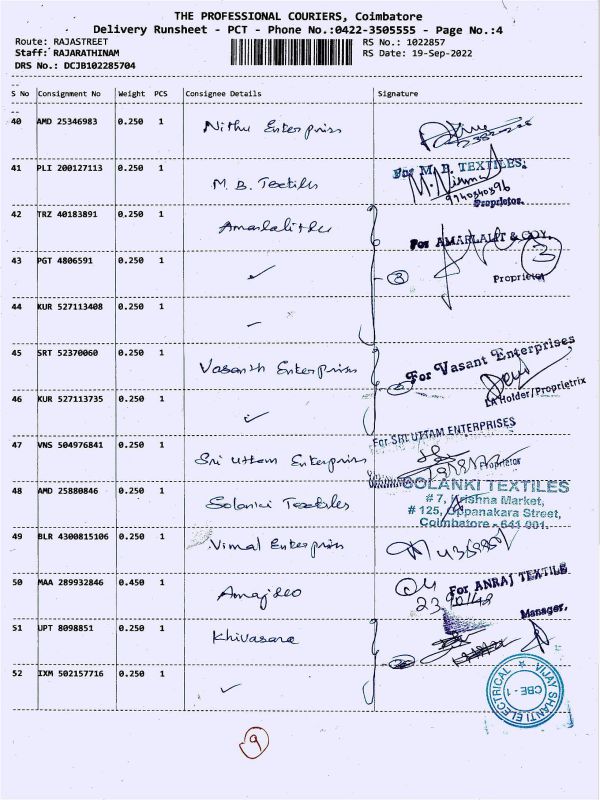 THE PROFESSIONAL COURIERS, Coimbatore
Delivery Runsheet - PCT - Phone No.:0422-3505555 - Page No.:4
Route: RAJASTREET RS No.: 1022857
Staff: RAJARATHINAM RS Date: 19-Sep-2022
DRS No.: DCJB102285704
S No Consignment No Weight PCS Consignee Details Signature
40 AMD 25346983 0.250 1 Nithu Enterpriss
41 PLI 200127113 0.250 1 M. B. Textiles For M. B. TEXTILES,
9740340396
Proprietor.
42 TRZ 40183891 0.250 1 Amarlalithu
For AMARLALIT & COY.
43 PGT 4806591 0.250 1 ✓ 3 3
Proprietor
44 KUR 527113408 0.250 1
45 SRT 52370060 0.250 1 Vasanth Enterpriss For Vasant Enterprises
46 KUR 527113735 0.250 1 ✓ Holder/Proprietrix
For SRI UTTAM ENTERPRISES
47 VNS 504976841 0.250 1 Sri Uttam Enterpriss Proprietor
48 AMD 25880846 0.250 1 Solanki Textiles SOLANKI TEXTILES
# 7, Krishna Market,
# 125, Oppanakara Street,
Coimbatore - 641 001.
49 BLR 4300815106 0.250 1 Vimal Enterpriss
50 MAA 289932846 0.450 1 Amajdeo For ANRAJ TEXTILE
Manager,
51 UPT 8098851 0.250 1 Khivasara
52 IXM 502157716 0.250 1 ✓
VIJAY SHANTI ELECTRICAL
CBE - 1
9